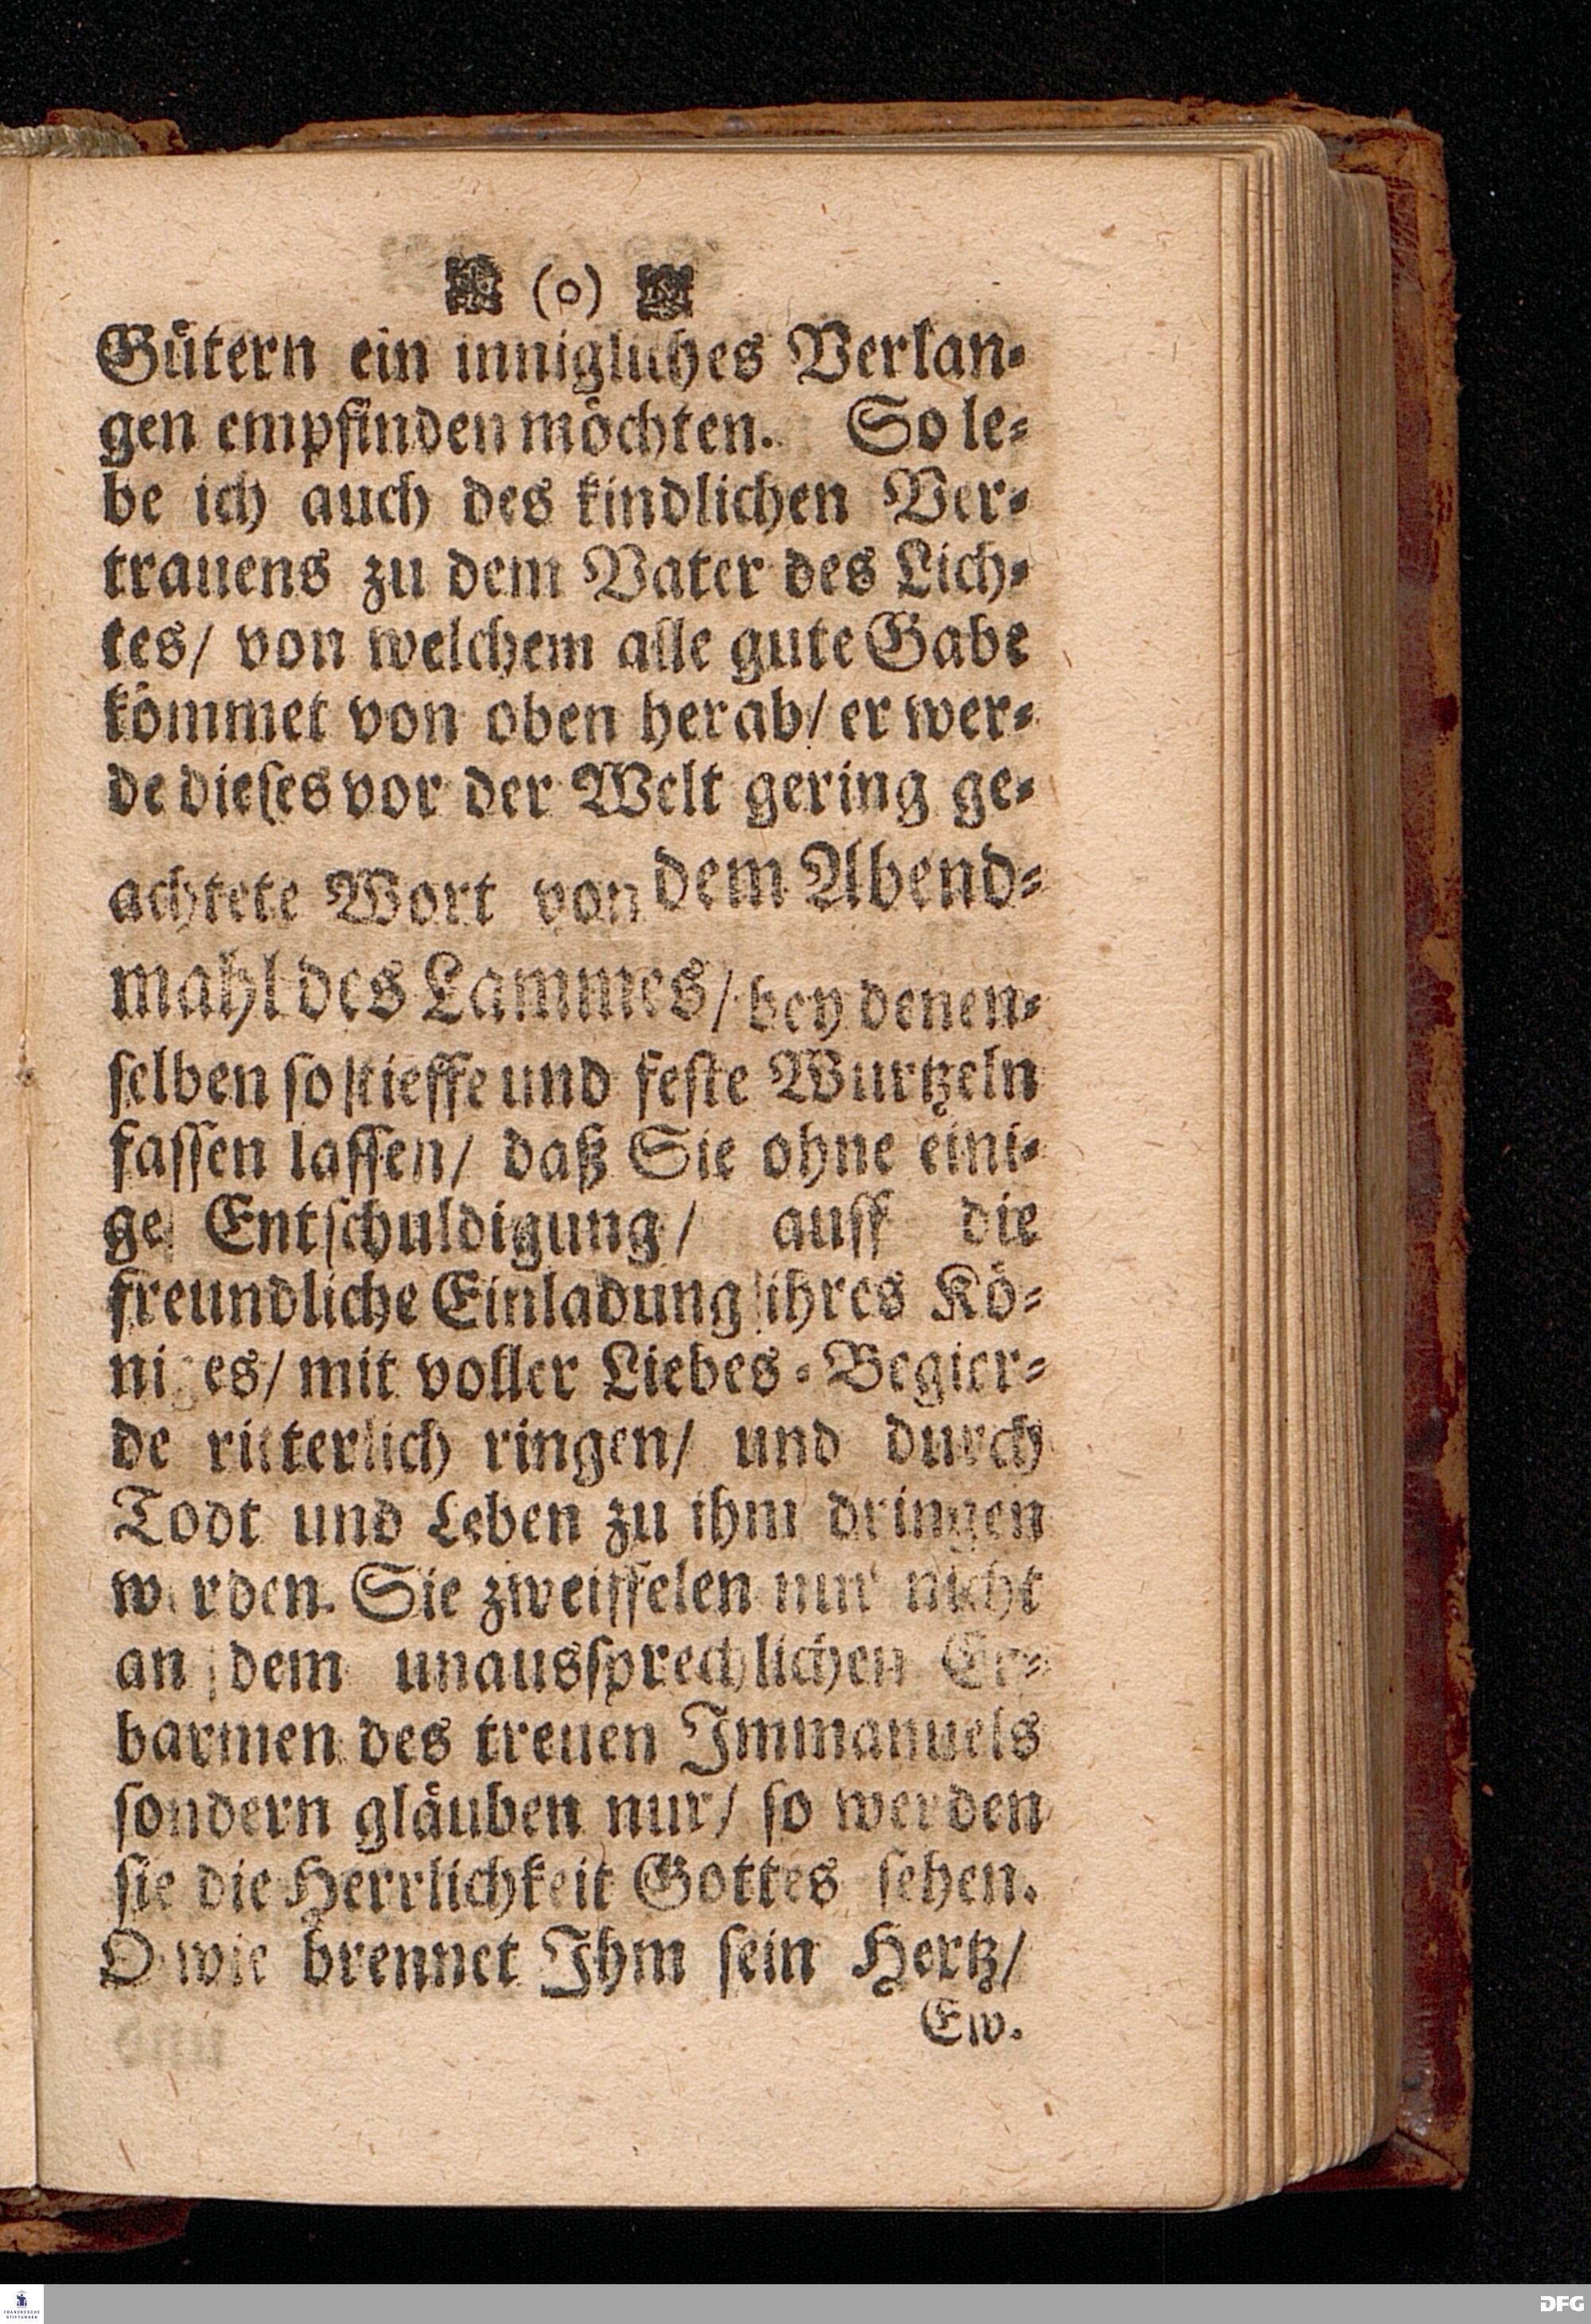 (o)
Gütern ein innigliches Verlan-
gen empfinden möchten. So le-
be ich auch des kindlichen Ver-
trauens zu dem Vater des Lich-
tes/ von welchem alle gute Gabe
kömmet von oben herab/ er wer-
de dieses vor der Welt gering ge-
achtete Wort von dem Abend-
mahl des Lammes/ bey denen-
selben so tieffe und feste Wurtzeln
fassen lassen/ daß Sie ohne eini-
ge Entschuldigung/ auff die
freundliche Einladung ihres Kö-
niges/ mit voller Liebes-Begier-
de ritterlich ringen/ und durch
Todt und Leben zu ihm dringen
werden. Sie zweiffelen nur nicht
an dem unaussprechlichen Er-
barmen des treuen Immanuels
sondern gläuben nur/ so werden
sie die Herrlichkeit Gottes sehen.
O wie brennet Ihm sein Hertz/
Ew.
FRANCKESCHE
STIFTUNGEN
DFG